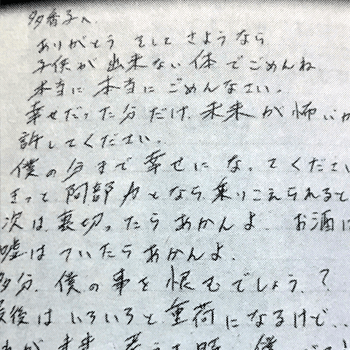 多香子へ
ありがとう そして さようなら
子供が出来ない体でごめんね
本当に 本当に ごめんなさい。
幸せだった分だけ、未来が怖いか
許してください。
僕の分まで幸せになってくださ
きっと 阿部力となら、乗りこえられると
次は、裏切ったらあかんよ お酒に
嘘はついたらあかんよ.
多分、僕の事を恨むでしょう?
最後はいろいろと重荷になるけど..